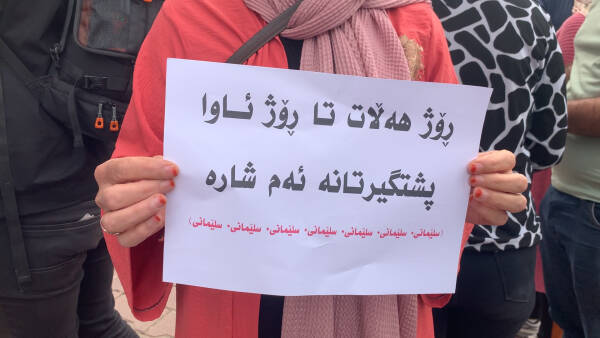 ڕۆژ هەڵات تا ڕۆژ ئاوا
پشتگیرتانە ئەم شارە
(سلێمانی- سلێمانی- سلێمانی- سلێمانی- سلێمانی- سلێمانی- سلێمانی)